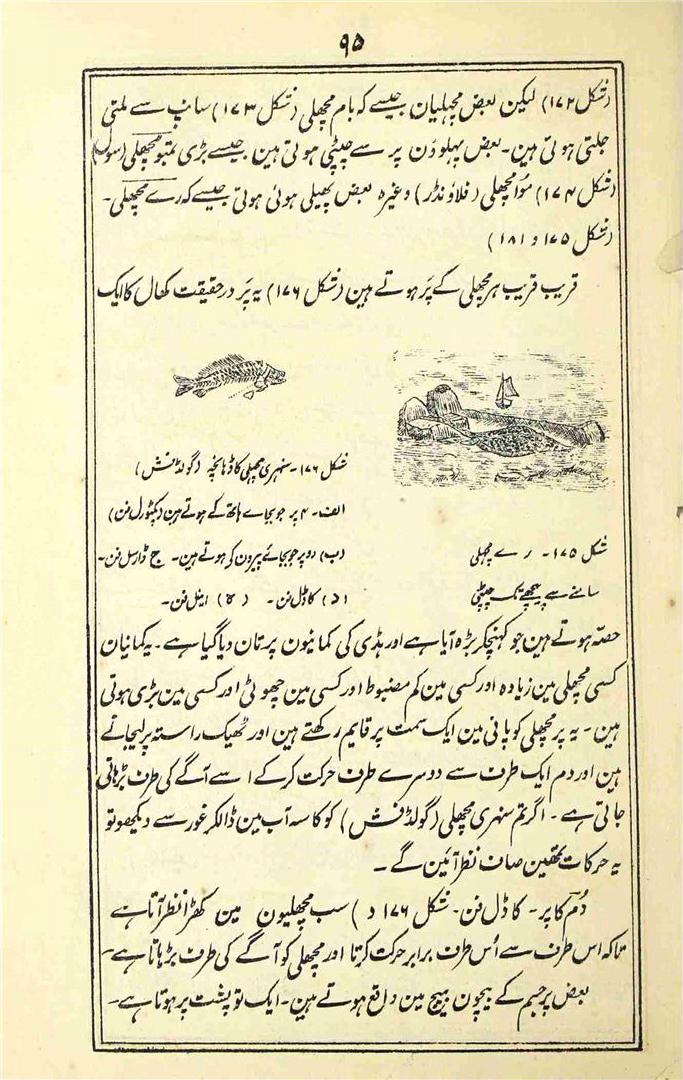 ۹۵
(شکل ۱۷۲) لیکن بعض مچہلیان جیسے کہ بام مچھلی (شکل ۱۷۳) سانپ سے ملتی
جلتی ہوتی ہین۔ بعض پہلوؤن پر سے چپٹی ہوتی ہین جیسے بڑی تنبو مچھلی (سول)
(شکل ۱۷۴) مؤا مچھلی (فلاؤنڈر) وغیرہ بعض پھیلی ہوئی ہوتی جیسے کہ رے مچھلی۔
(شکل ۱۷۵ و ۱۸۱)
قریب قریب ہر مچھلی کے پَر ہوتے ہین (شکل ۱۷۶) یہ پَر درحقیقت کھال کا ایک
شکل ۱۷۶۔ سنہری مچھلی کا ڈہانچہ (گولڈفش)
الف۔ ۴ پر جو بجاے ہاتھ کے ہوتے ہین (پکٹورل فن)
(ب) دو پر جو بجائے پیرون کی ہوتے ہین۔ ج ڈارسل فن۔
(د) کاڈل فن۔ (ہ) اینل فن۔
شکل ۱۷۵۔ رے مچہلی
سامنے سے پیچھے تک چپٹی
حصہ ہوتے ہین جو کہنچکر بڑہ آیا ہے اور ہڈی کی کمانیون پر تان دیا گیا ہے۔ یہ کمانیان
کسی مچھلی مین زیادہ اور کسی مین کم مضبوط اور کسی مین چھوٹی اور کسی مین بڑی ہوتی
ہین۔ یہ پر مچھلی کو پانی مین ایک سمت پر قایم رکھتے ہین اور ٹھیک راستہ پر لیجاتے
ہین اور دم ایک طرف سے دوسرے طرف حرکت کرکے اسے آگے کی طرف بڑہاتی
جاتی ہے۔ اگر تم سنہری مچھلی (گولڈفش) کو کاسہ آب مین ڈالکر غور سے دیکھو تو
یہ حرکات تمھین صاف نظر آئین گے۔
دُم کا پر۔ کاڈل فن۔ شکل ۱۷۶ د) سب مچھلیون مین کھڑا نظر آتا ہے
تاکہ اس طرف سے اُس طرف برابر حرکت کرتا اور مچھلی کو آگے کی طرف بڑہاتا ہے۔
بعض پر جسم کے بیچون بیچ مین واقع ہوتے ہین۔ ایک تو پشت پر ہوتا ہے۔